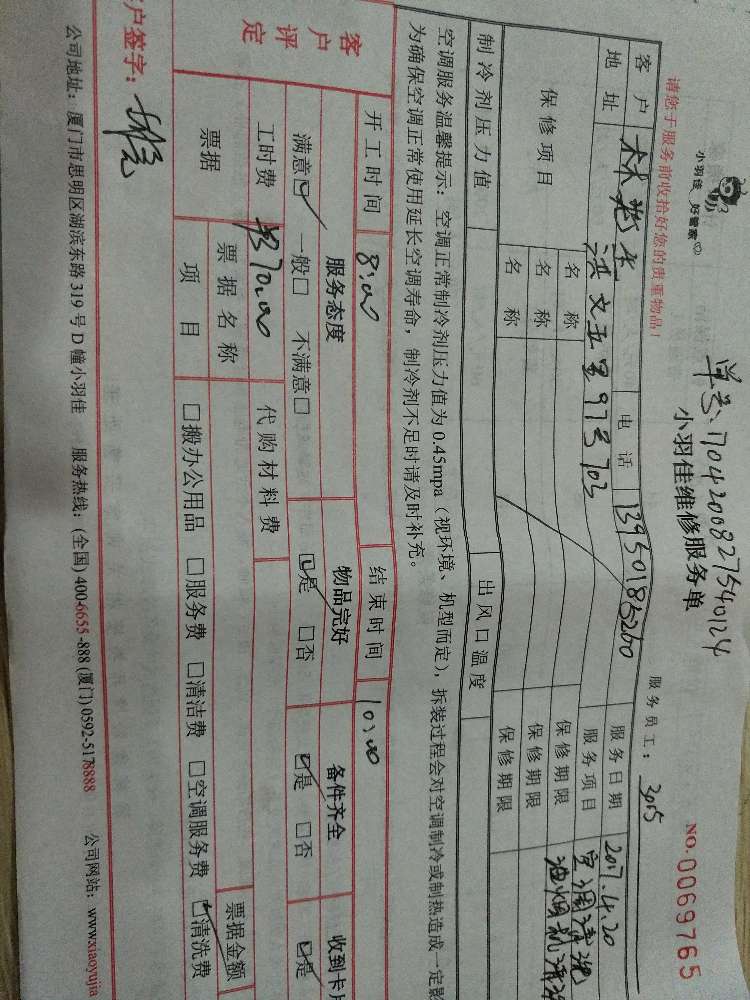 小羽佳 好管家
单号:1704200827540124
小羽佳维修服务单
NO.0069765
请您于服务前收拾好您的贵重物品!
服务员工: 3015
客户 电话 13950185260 服务日期 2017.4.20
地址 洪文五里97号703 服务项目 空调清洗
油烟机清洗
保修项目 名称 保修期限
名称 保修期限
名称 保修期限
制冷剂压力值 出风口温度
空调服务温馨提示: 空调正常制冷剂压力值为0.45mpa(视环境、机型而定),拆装过程会对空调制冷或制热造成一定影
为确保空调正常使用延长空调寿命,制冷剂不足时请及时补充。
开工时间 8:00 结束时间 10:00
客户评定 服务态度 物品完好 备件齐全 收到卡片
满意☑ 一般□ 不满意□ ☑是 □否 ☑是 □否 ☑是
工时费 370.00 代购材料费
票据 票据名称 票据金额
项目 □搬办公用品 □服务费 □清洁费 □空调服务费 ☑清洗费
户签字:
公司地址: 厦门市思明区湖滨东路319号D幢小羽佳 服务热线: (全国) 400-6655-888 (厦门) 0592-5178888 公司网站: www.xiaoyujia